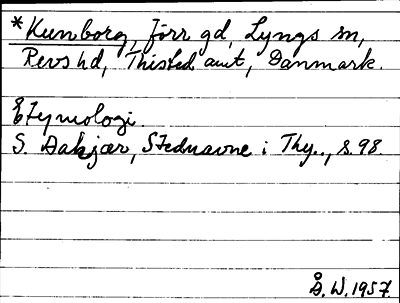 *Kunborg, förr gd, Lyngs sn,
Revs hd, Thisted amt, Danmark.
Etymologi.
S. Aakjær, Stednavne i Thy.., s. 98.
Å. W. 1957.